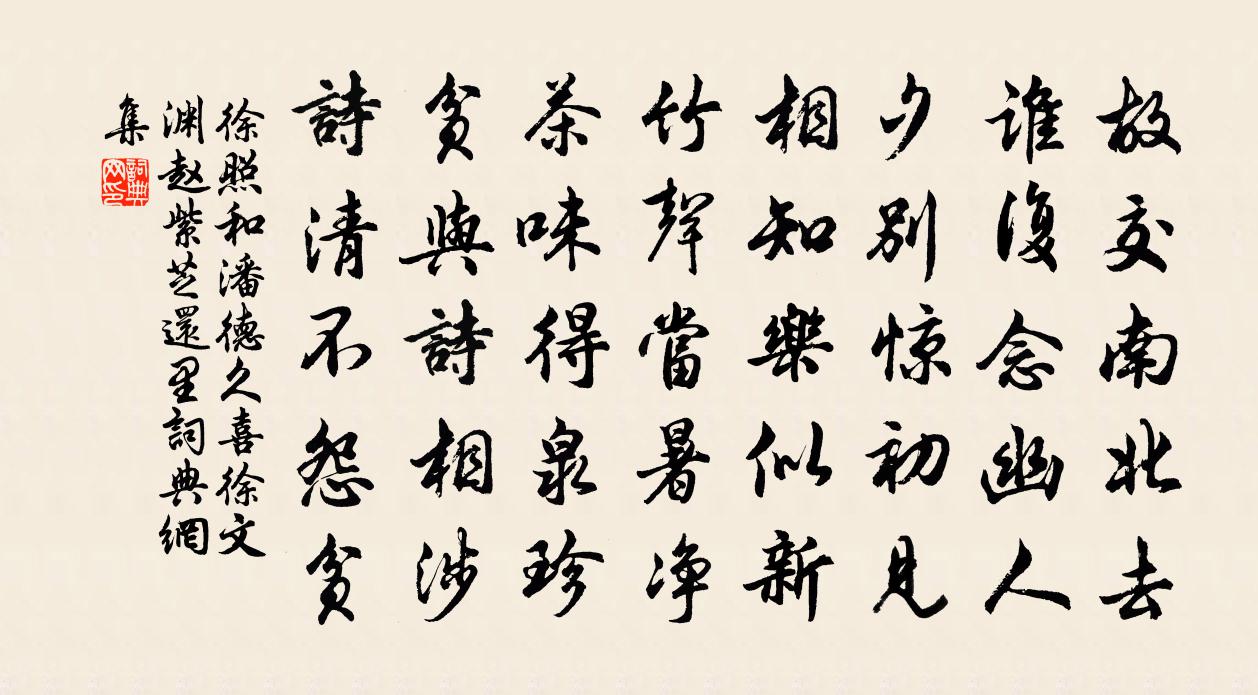 故交南北去
谁復念幽人
夕别惊初見
相知樂似新
竹聲當暑净
茶味得泉珍
貧與詩相涉
詩清不怨貧
徐照和潘德久喜徐文
渊赵紫芝還里詞典網
集
詞典網印